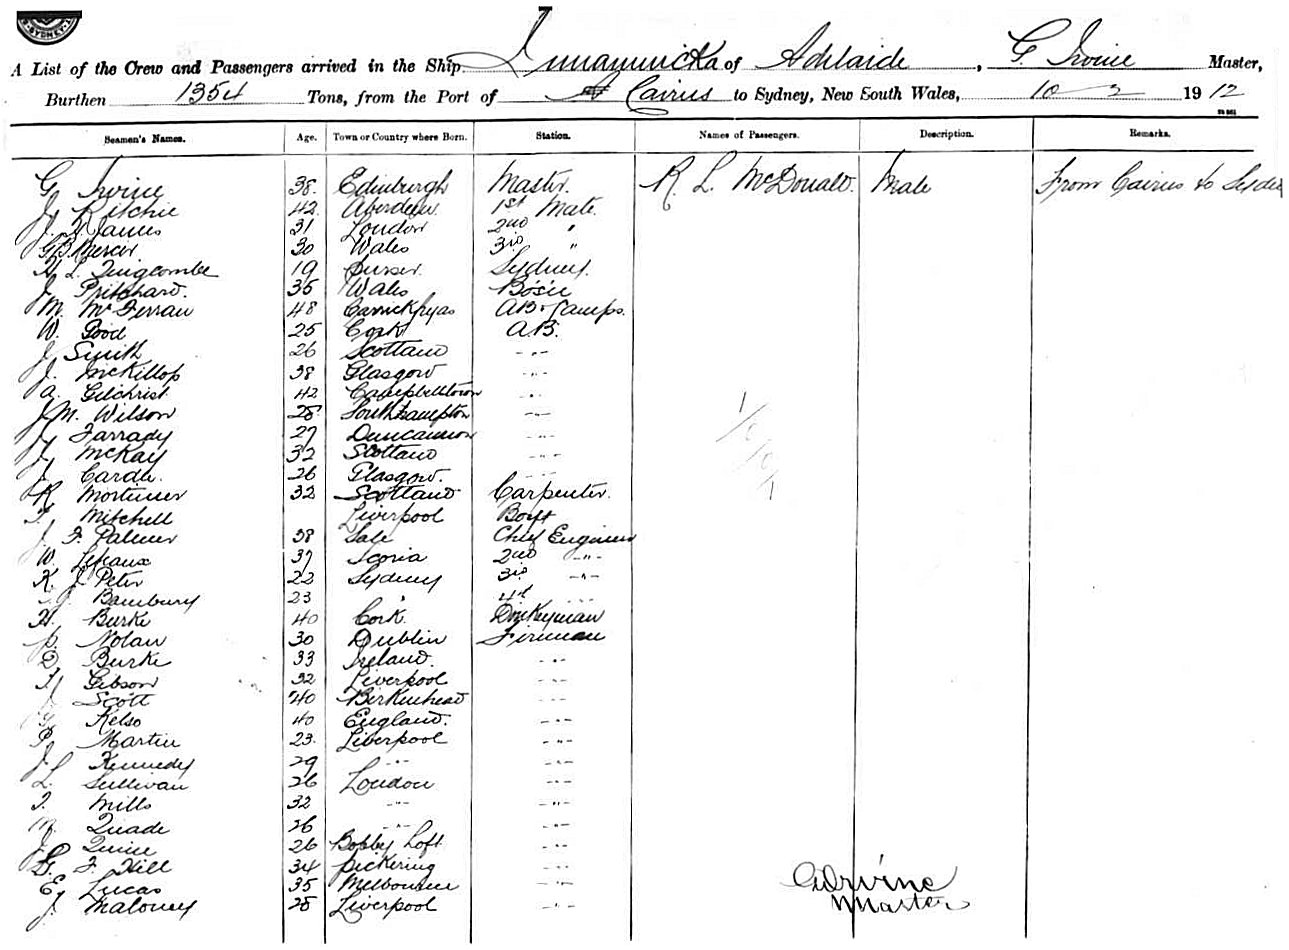 SYDNEY
A List of the Crew and Passengers arrived in the Ship Innamincka of Adelaide, G. Irvine Master,
Burthen 1354 Tons, from the Port of Cairns to Sydney, New South Wales, 10 - 2 1912
Seamen's Names. Age. Town or Country where Born. Station. Names of Passengers. Description. Remarks.
G. Irvine 38. Edinburgh Master. R. L. McDonald. Male From Cairns to Sydn
J. Ritchie 42. Aberdeen 1st Mate.
J. James 31 London 2nd "
G. B. Mercer 30 Wales 3rd "
H. L. 19 Sydney.
J. Pritchard. 35 Wales Bosn
M. McFerran 48 Carrickfgas AB & Lamps.
W. Good 25 Cork A.B.
J. Smith 26 Scotland -"-
J. McKillop 38 Glasgow -"-
A. Gilchrist 42 Campbelltown -"-
J. M. Wilson 28 Southampton -"-
J. Farrady 27 Duncannon -"-
J. McKay 32 Scotland -"-
J. Cardle. 26 Glasgow. -"-
R. Mortimer 32 Scotland Carpenter.
F. Mitchell Liverpool Boy
J. F. Palmer 38 Sale Chief Engineer
W. 37 Scoria 2nd -"-
K. J. Peter 22 Sydney 3rd -"-
Bambury 23 " 4th -"-
H. Burke 40 Cork. Donkeyman
P. Nolan 30 Dublin Fireman
D. Burke 33 Ireland. -"-
H. Gibson 32 Liverpool -"-
J. Scott 40 Birkenhead -"-
Kelso 40 England. -"-
P. Martin 23. Liverpool -"-
J. Kennedy 29 -"- -"-
L. Sullivan 26 London -"-
T. Mills 32 -"- -"-
M. Quade 26 -"- -"-
J. Quinn 26 Bobby Loft -"-
G. F. Hill 34 Pickering -"-
E. Lucas 35 Melbourne -"-
J. Maloney 28 Liverpool -"-
G Irvine
Master